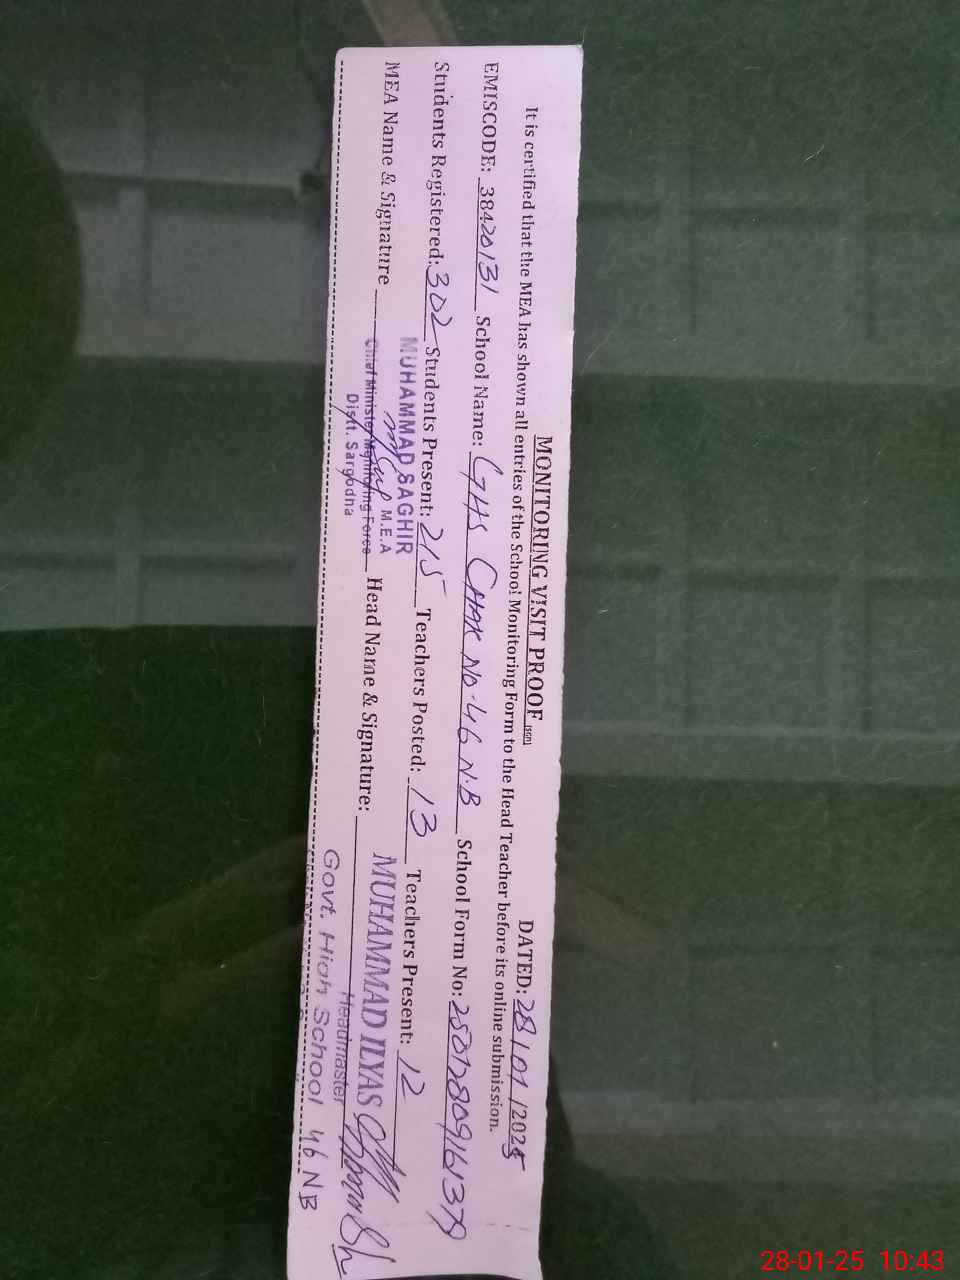 MONITORING VISIT PROOF [SGD] DATED: 28/01/2025
It is certified that the MEA has shown all entries of the School Monitoring Form to the Head Teacher before its online submission.
EMISCODE: 38420131 School Name: GHS CHAK NO-46 N.B School Form No:
Students Registered: 302 Students Present: 215 Teachers Posted: 13 Teachers Present: 12
MEA Name & Signature MUHAMMAD SAGHIR Head Name & Signature: MUHAMMAD ILYAS
M.E.A
Chief Minister Monitoring Force
Distt. Sargodha
Headmaster
Govt. High School 46 NB
28-01-25 10:43